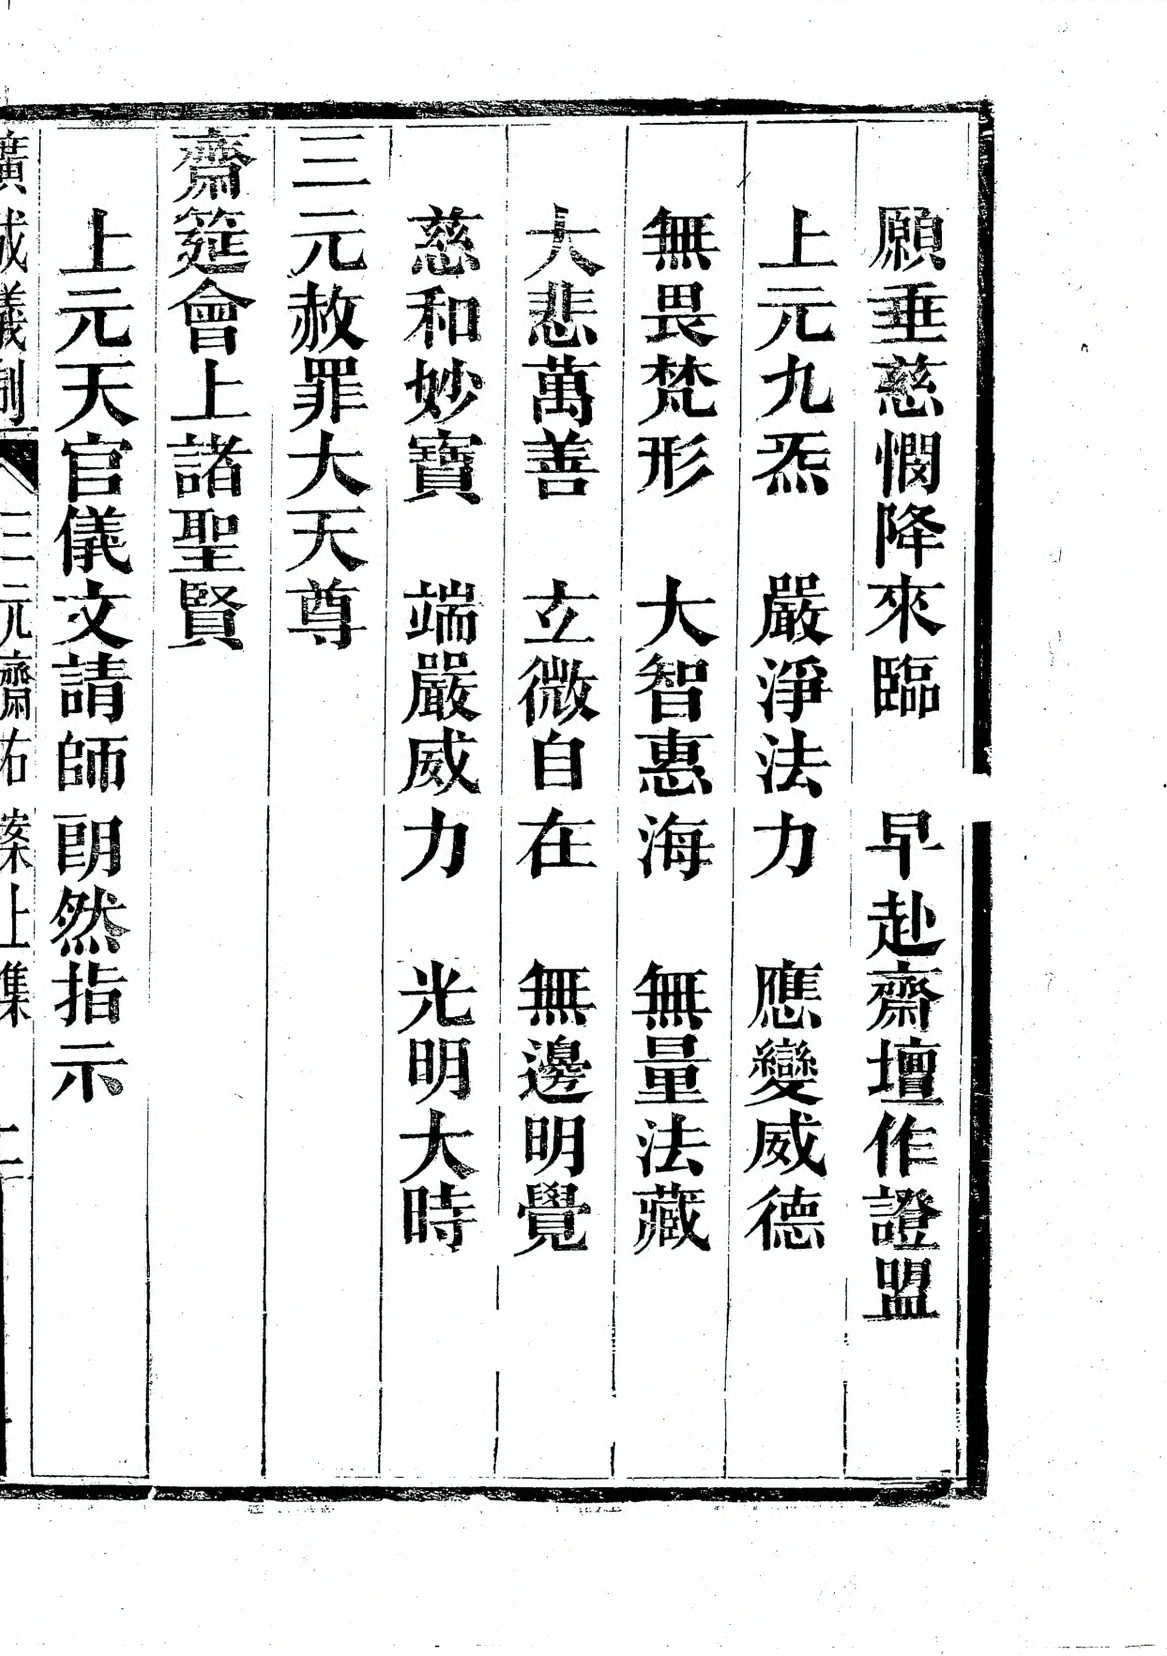 願垂慈憫降來臨　早赴齋壇作證盟
上元九炁　嚴淨法力　應變威德
無畏梵形　大智惠海　無量法藏
大悲萬善　玄微自在　無邊明覺
慈和妙寶　端嚴威力　光明大時
三元赦罪大天尊
齋筵會上諸聖賢
上元天官儀文請師朗然指示
廣成儀制　三元齋右案上集　二